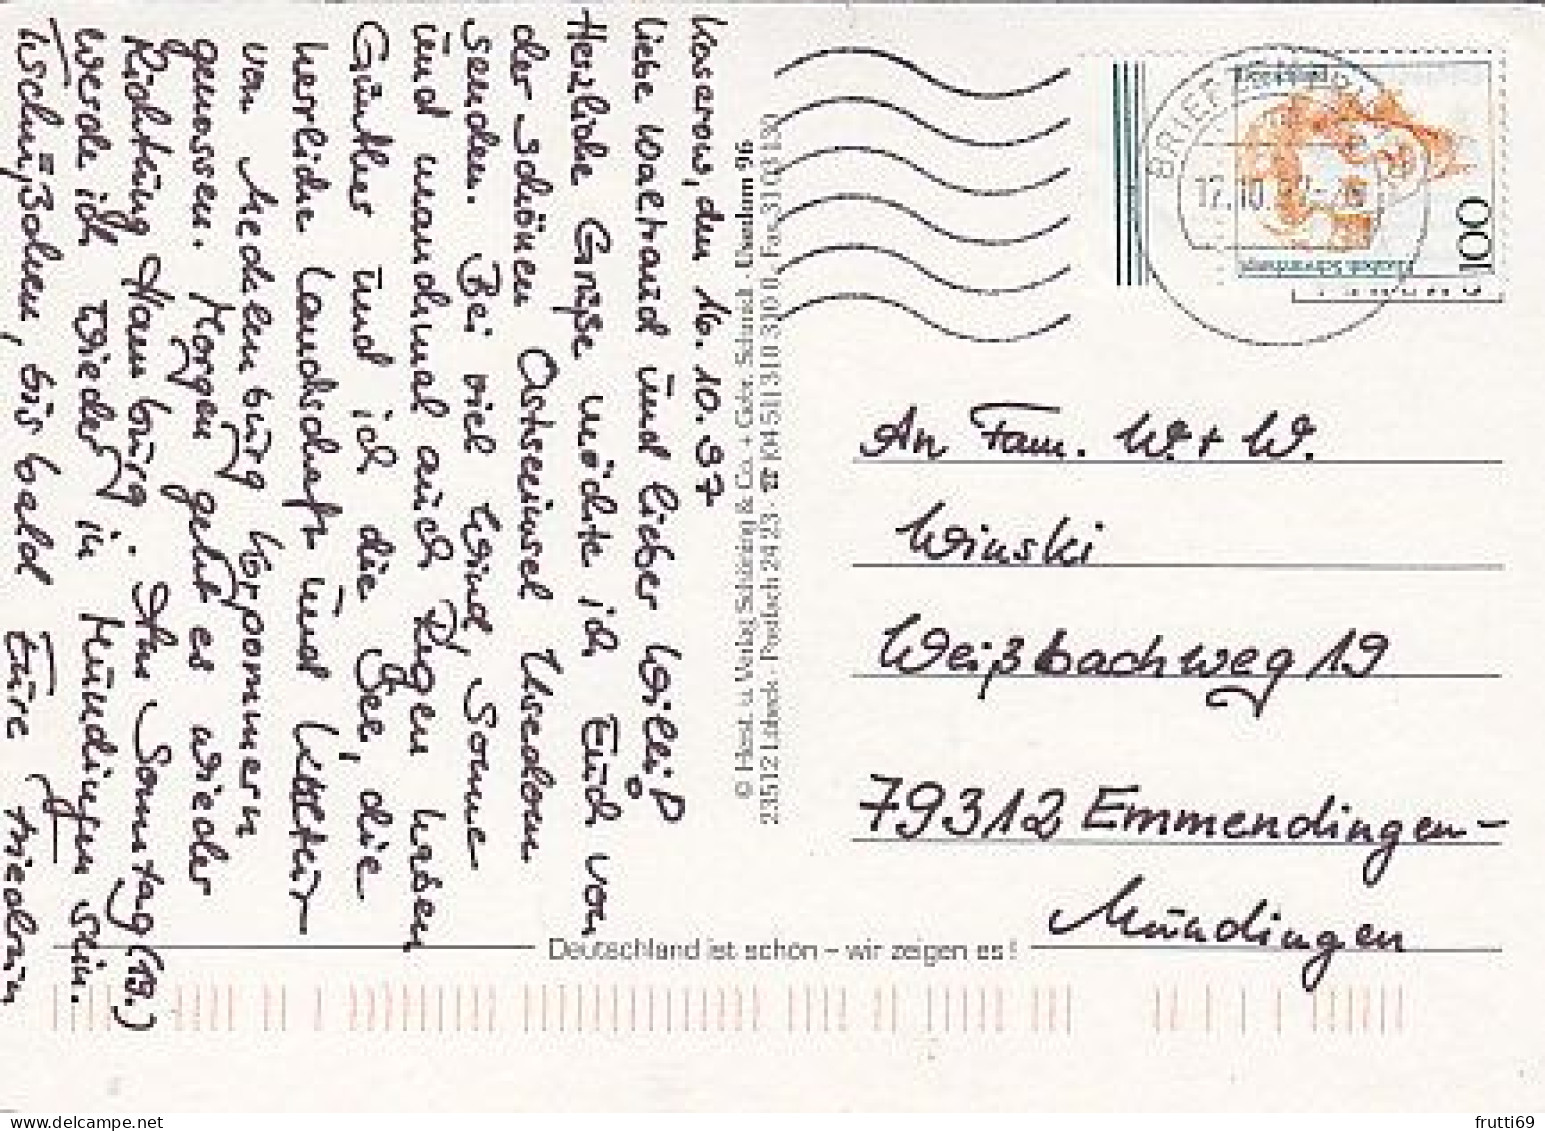 Koserow, den 16.10.97
liebe Waltraud und lieber Willi!
Herzliche Grüße möchte ich Euch von
der schönen Ostseeinsel Usedom
senden. Bei viel Wind, Sonne
und manchmal auch Regen haben
Günther und ich die See, die
herrliche Landschaft und Kultur
von Meckemburg Vorpommern
genossen. Morgen geht es wieder
Richtung Hamburg. Am Sonntag (19.)
werde ich wieder in Mündingen sein.
Tschüß, bis bald Eure
© Herst. u. Verlag Schöning & Co. + Gebr. Schmidt · Usedom 96
23512 Lübeck · Postfach 24 23 · ☎ (04 51) 3 10 3 10 0, Fax 3 10 03 130
BRIEFZENTRUM
17.10.
Deutschland
Elisabeth Schwarzhaupt
100
An Fam. W. + W.
Winski
Weißbachweg 19
79312 Emmendingen-
Mündingen
Deutschland ist schön – wir zeigen es!
frutti69